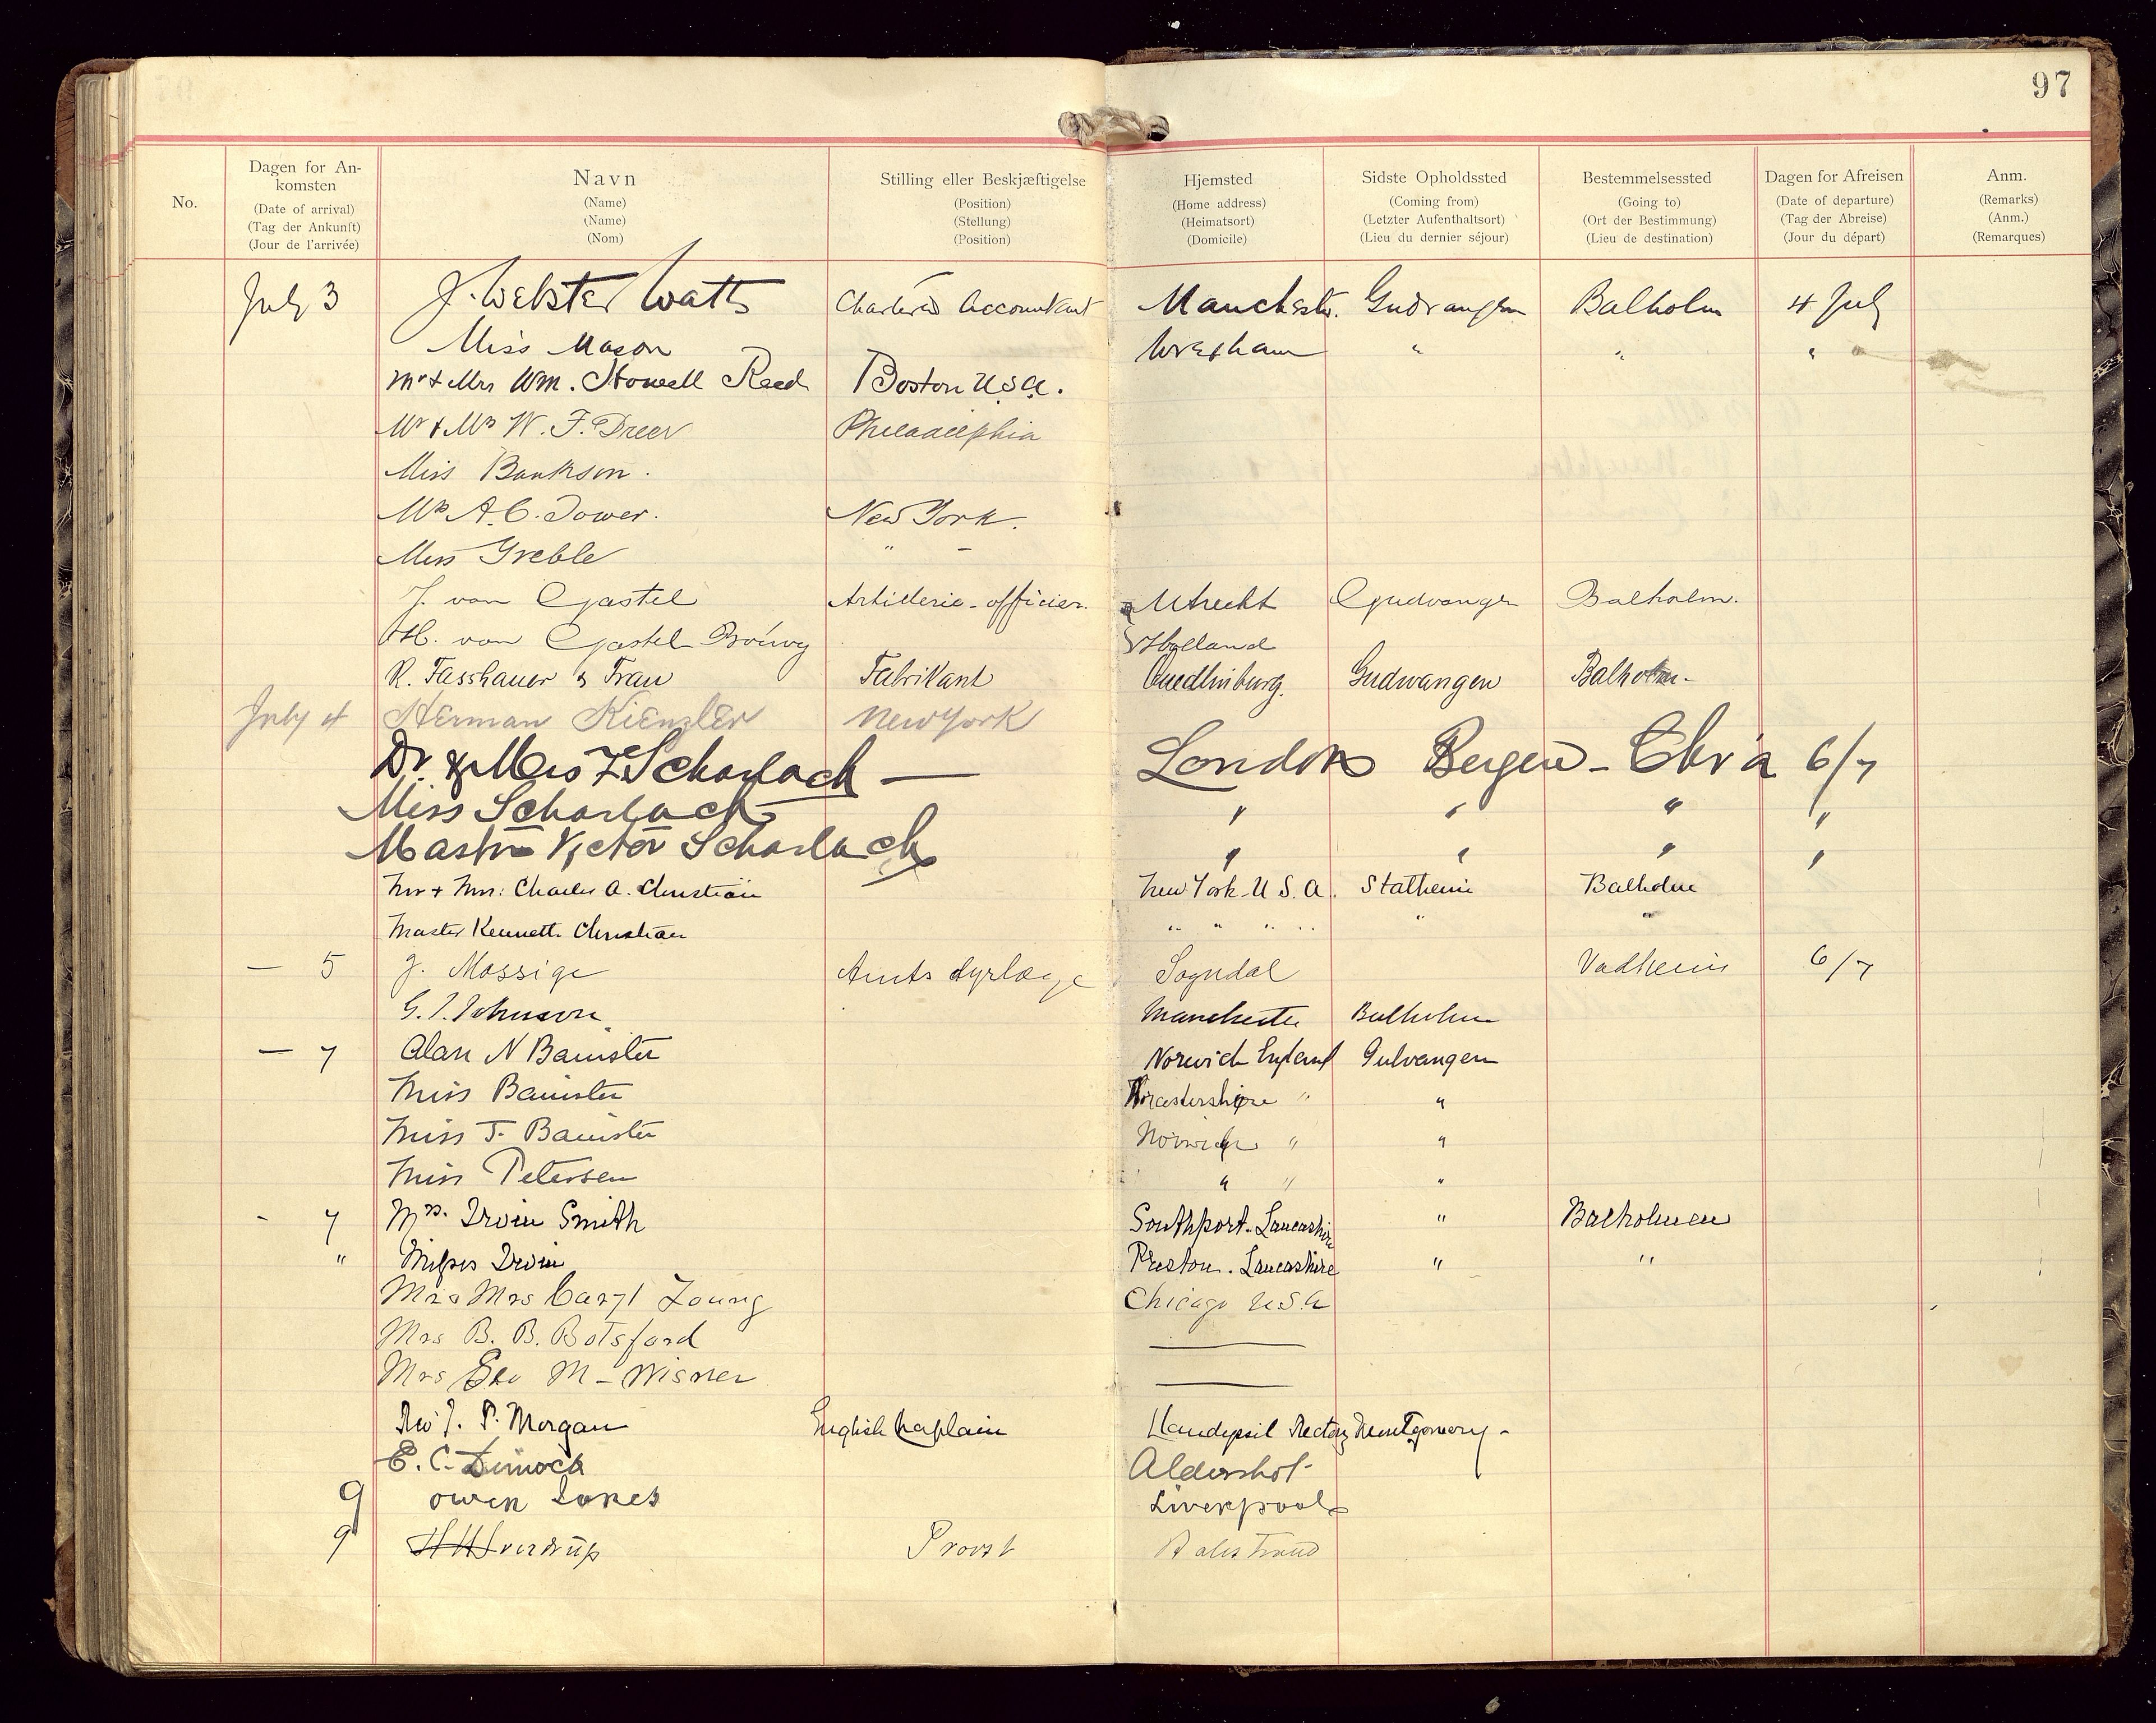 97
No. Dagen for An- komsten (Date of arrival) (Tag der Ankunft) (Jour de l'arrivée) Navn (Name) (Name) (Nom) Stilling eller Beskjæftigelse (Position) (Stellung) (Position) Hjemsted (Home address) (Heimatsort) (Domicile) Sidste Opholdssted (Coming from) (Letzter Aufenthaltsort) (Lieu du dernier séjour) Bestemmelsessted (Going to) (Ort der Bestimmung) (Lieu de destination) Dagen for Afreisen (Date of departure) (Tag der Abreise) (Jour du départ) Anm. (Remarks) (Anm.) (Remarques)
July 3 J. Webster Watts Chartered Accountant Manchestr. Gudvangen Balholm 4 July
Miss Mason Wrexham " " "
Mr & Mrs Wm. Howell Reed Boston U.S.A.
Mr & Mrs W. F. Dreer Philadelphia
Miss Bankson.
Mrs A. C. Tower. New York.
Miss Greble " -
J. van Gastel Artillerie-officier. Utrecht Gudvangen Balholm.
H. van Gastel Holland
R. Fasshauer & Frau Fabrikant Quedlinburg. Gudwangen Balholm.
July 4 Herman Kienzler New York
Dr. & Mrs Z Scharlach — London Bergen - Chr'a 6/7
Miss Scharlach " " " "
Master Victor Scharlach " " " "
Mr + Mrs: Charles A. Christian New York U.S.A. Stalheim Balholm
Master Kenneth Christian " " " " " "
— 5 J. Mossige Amtsdyrlæge Sogndal Vadheim 6/7
G. I. Johnson Manchester Balholm
— 7 Alan N Banister Norwich England Gudvangen
Miss Banister Worcestershire " "
Miss T. Banister Norwich " "
Miss Petersen " " "
- 7 Mrs. Irvin Smith Southport. Lancashire " Balholmen
" Misses Irvin Preston. Lancashire " "
Mr & Mrs Caryl Young Chicago U.S.A
Mrs B. B. Botsford ——
Mrs Geo M - Wisner ——
Rev J. P. Morgan English Chaplain Llandyssil Rectory Montgomery -
E. C. Dimock Aldershot
9 Owen Jones Liverpool
9 HHSverdrup Provst Balestrand